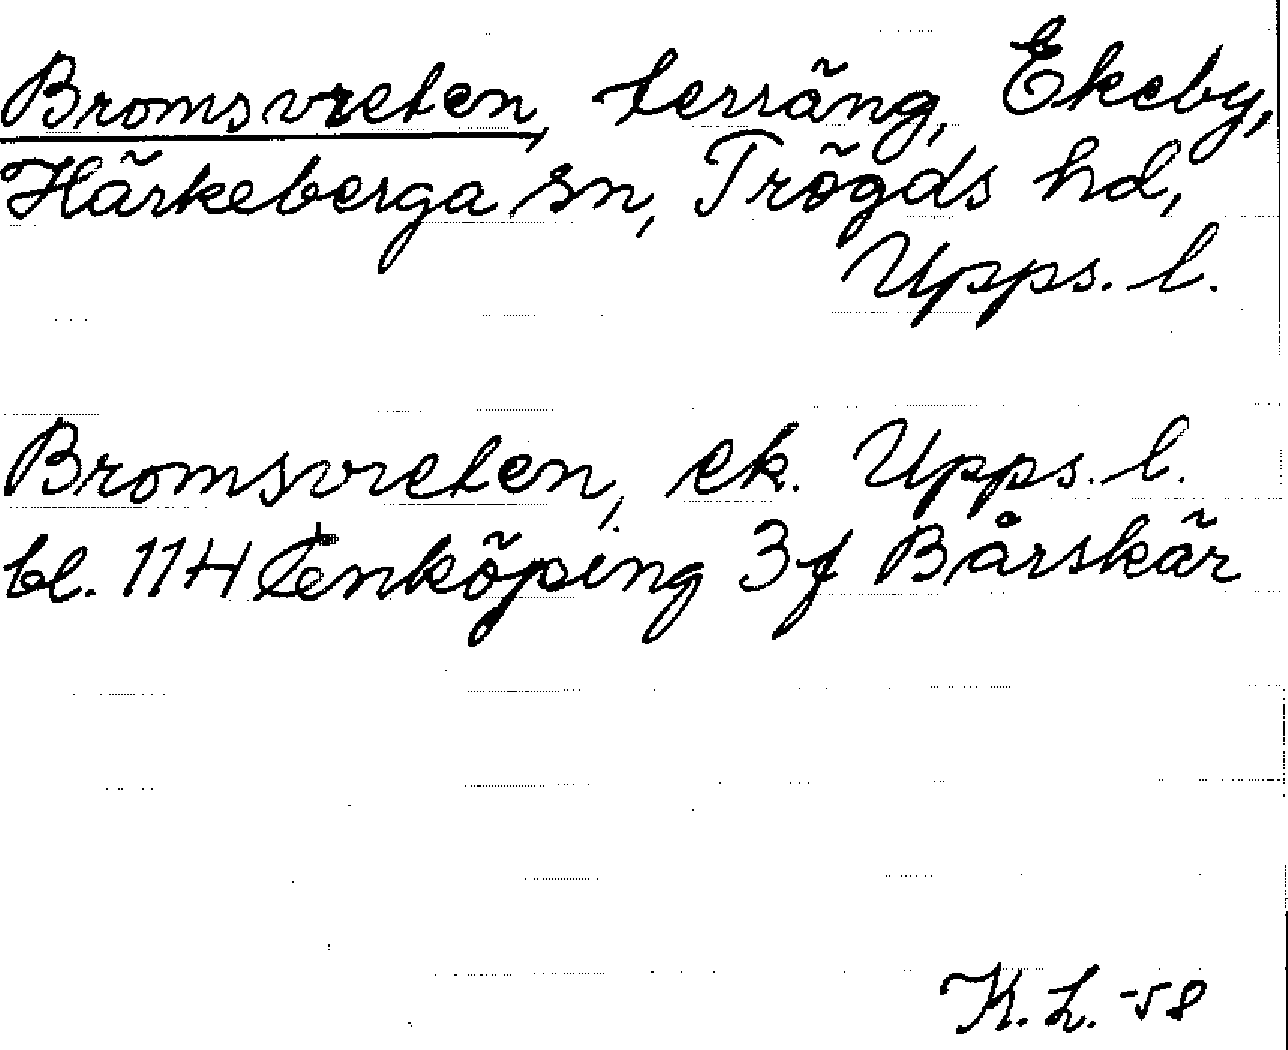 Bromsvreten, terräng, Ekeby,
Härkeberga sn, Trögds hd,
Upps. l.
Bromsvreten, ek. Upps. l.
bl. 11H Enköping 3f Bårskär
K. L. -58